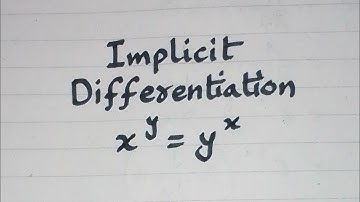 Implicit
Differentiation
x^y = y^x